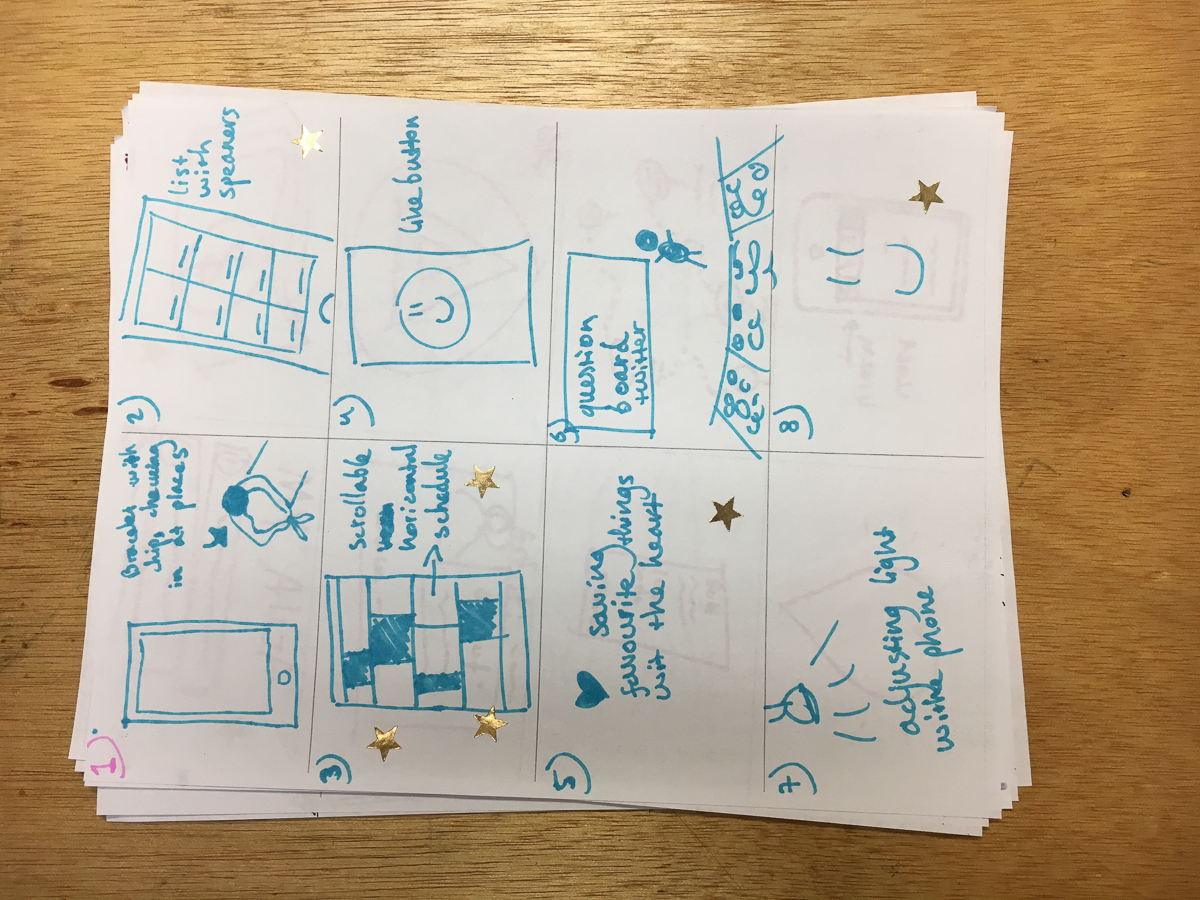 1)
Bracelet with
chips cheking
in at places
2)
List
with
speakers
3)
scrollable
horizontal
schedule
4)
like button
5)
Saving
favourite things
wit the heart
6)
question
board
twitter
7)
adjusting light
withe phone
8)